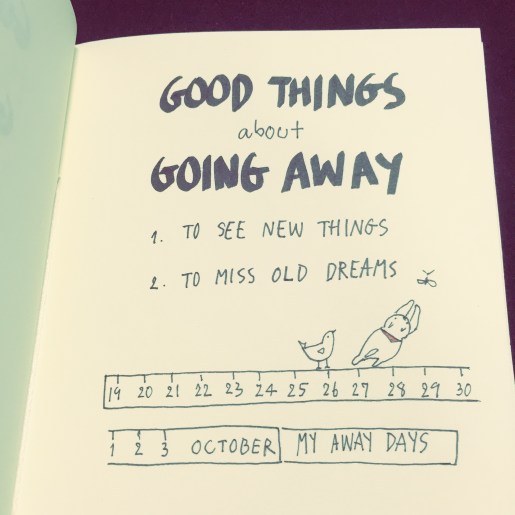 GOOD THINGS
about
GOING AWAY
1. TO SEE NEW THINGS
2. TO MISS OLD DREAMS
19 20 21 22 23 24 25 26 27 28 29 30
1 2 3 OCTOBER MY AWAY DAYS